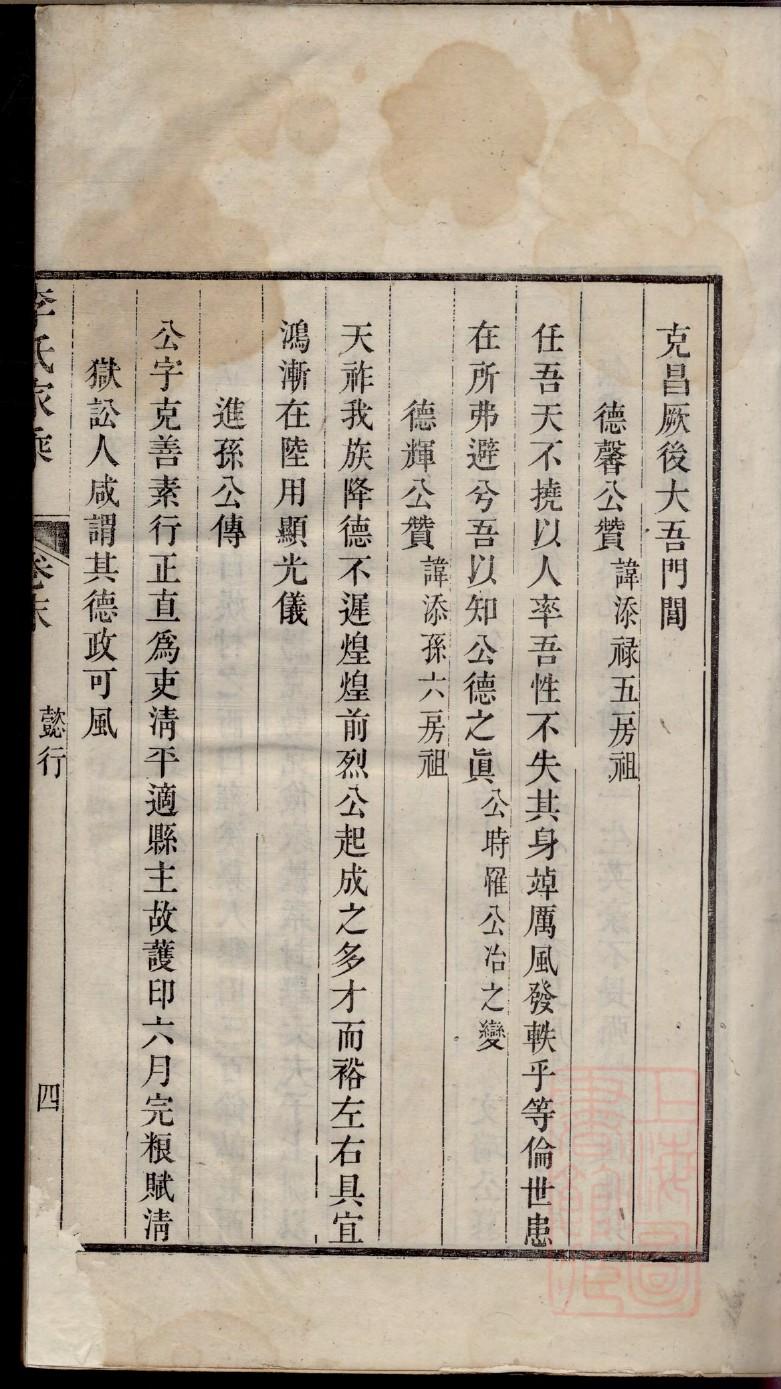 克昌厥後大吾門閭
德馨公贊 諱添祿五房祖
任吾天不撓以人率吾性不失其身踔厲風發軼乎等倫世患
在所弗避兮吾以知公德之眞 公時罹公冶之變
德輝公贊 諱添孫六房祖
天祚我族降德不遲煌煌前烈公起成之多才而裕左右具宜
鴻漸在陸用顯光儀
進孫公傳
公字克善素行正直爲吏淸平適縣主故護印六月完粮賦淸
獄訟人咸謂其德政可風
李氏家乘 卷末 懿行 四